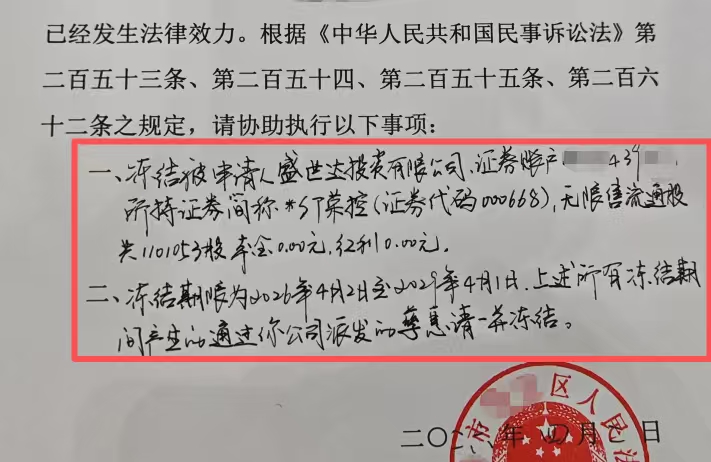 已经发生法律效力。根据《中华人民共和国民事诉讼法》第
二百五十三条、第二百五十四、第二百五十五条、第二百六
十二条之规定，请协助执行以下事项：
一、冻结被申请人盛世达投资有限公司、证券账户 439
所持证券简称*ST荣控(证券代码000668),无限售流通股
共1101053股 本金0.00元,红利0.00元.
二、冻结期限为2026年4月2日至2029年4月1日.上述所有冻结期
间产生的通过你公司派发的孳息请一并冻结。
市 区人民法
二〇二六年四月二日